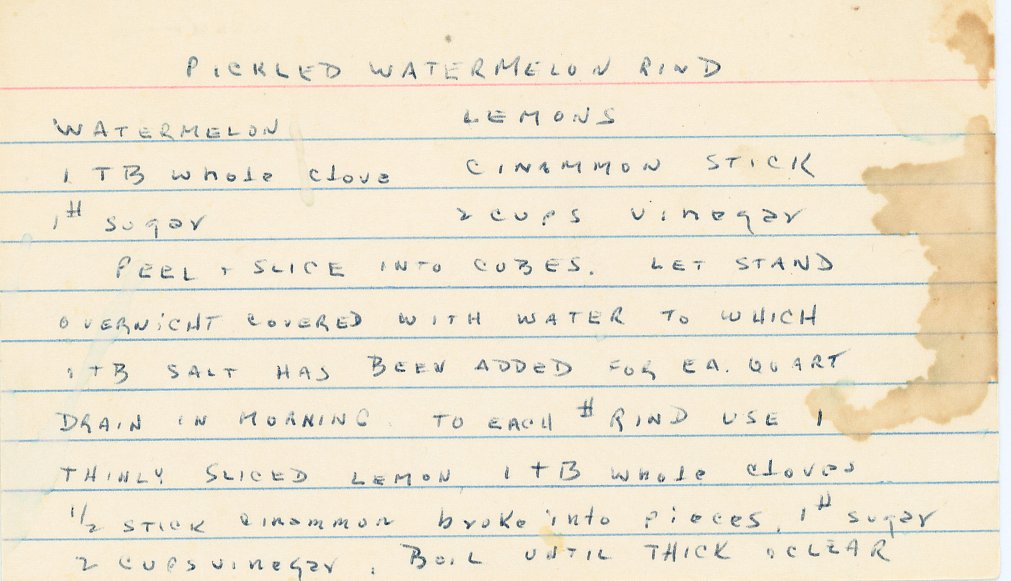 PICKLED WATERMELON RIND
WATERMELON LEMONS
1 TB whole clove CINAMMON STICK
1# sugar 2 cups vinegar
PEEL + SLICE INTO CUBES. LET STAND
OVERNIGHT COVERED WITH WATER TO WHICH
1 TB SALT HAS BEEN ADDED FOR EA. QUART
DRAIN IN MORNING. TO EACH # RIND USE 1
THINLY SLICED LEMON, 1 TB whole cloves
1/2 STICK cinammon broke into pieces, 1# sugar
2 cups vinegar. BOIL UNTIL THICK & CLEAR